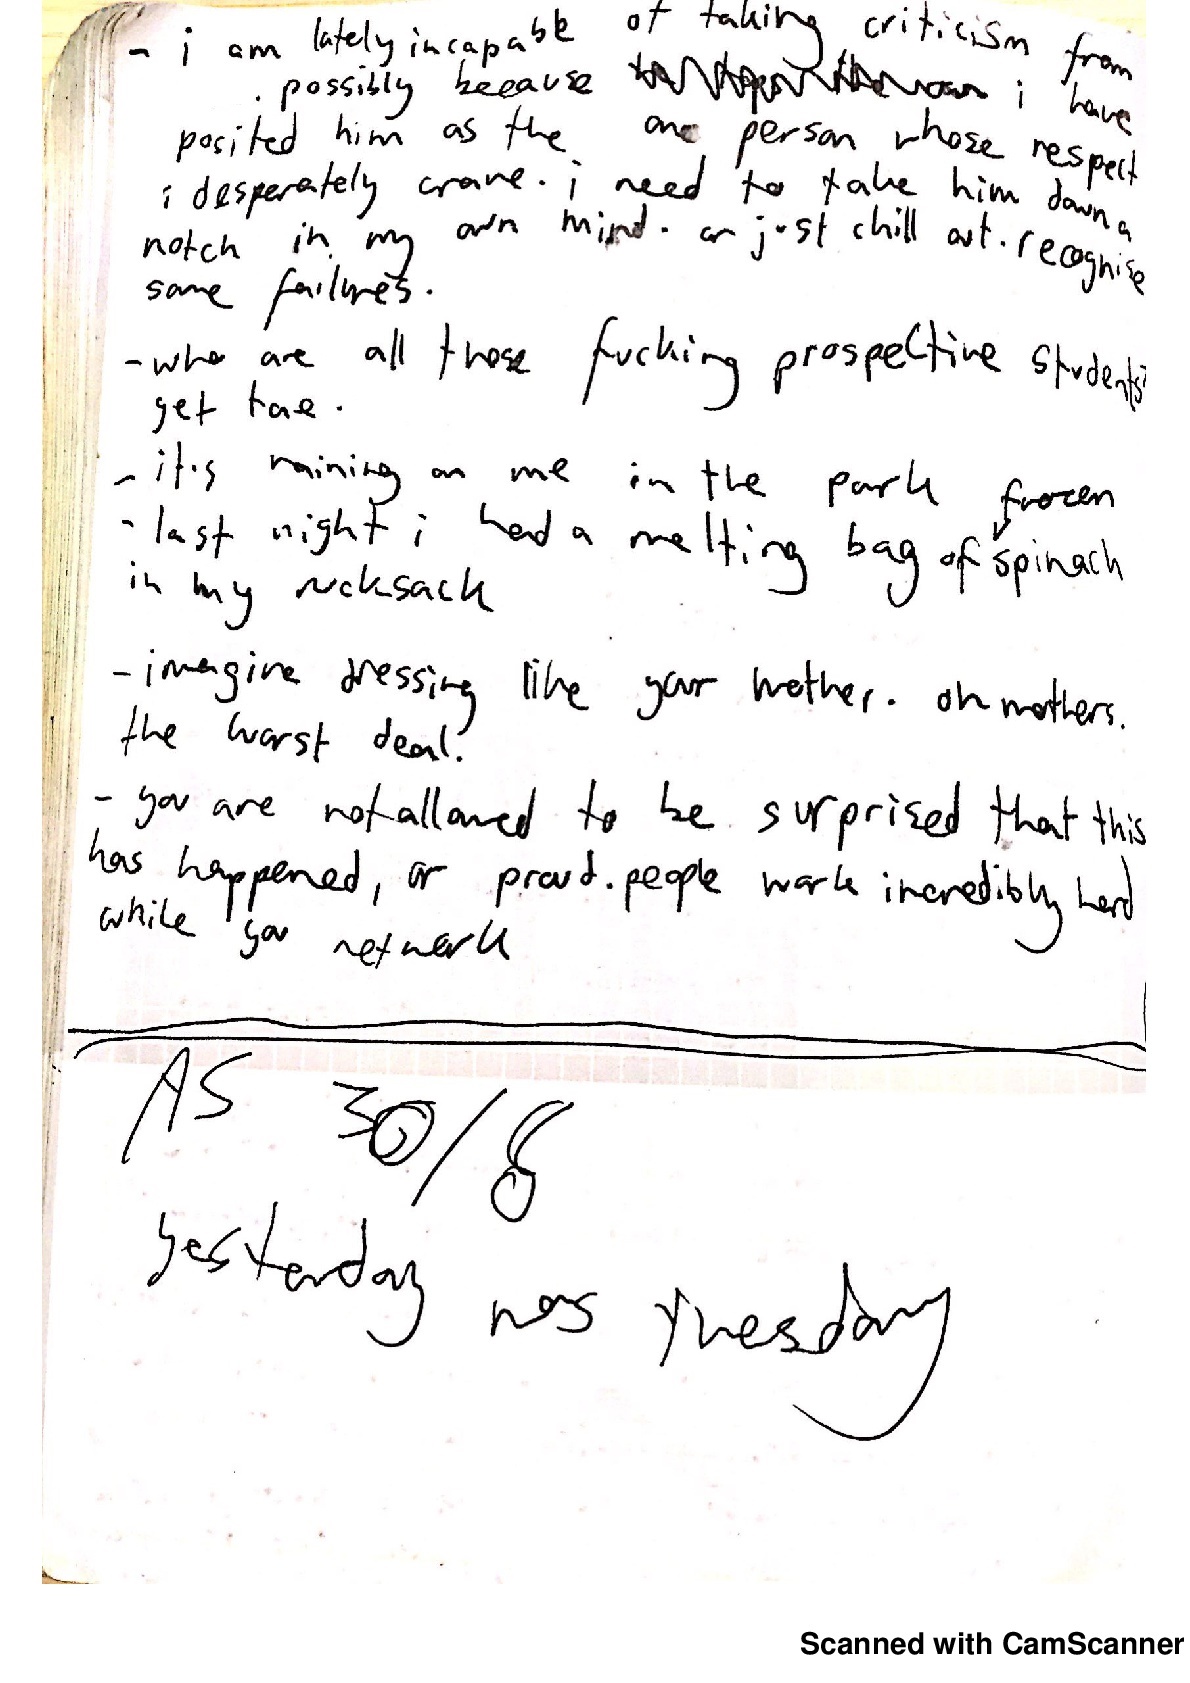 - i am lately incapable of taking criticism from
. possibly because i have
posited him as the one person whose respect
i desperately crave. i need to take him down a
notch in my own mind. or just chill out. recognise
some failures.
- who are all these fucking prospective students?
get tae.
- it's raining on me in the park
- last night i had a melting bag of frozen spinach
in my rucksack
- imagine dressing like your mother. oh mothers.
the worst deal.
- you are not allowed to be surprised that this
has happened, or proud. people work incredibly hard
while you network
AS 30/8
yesterday was tuesday
Scanned with CamScanner